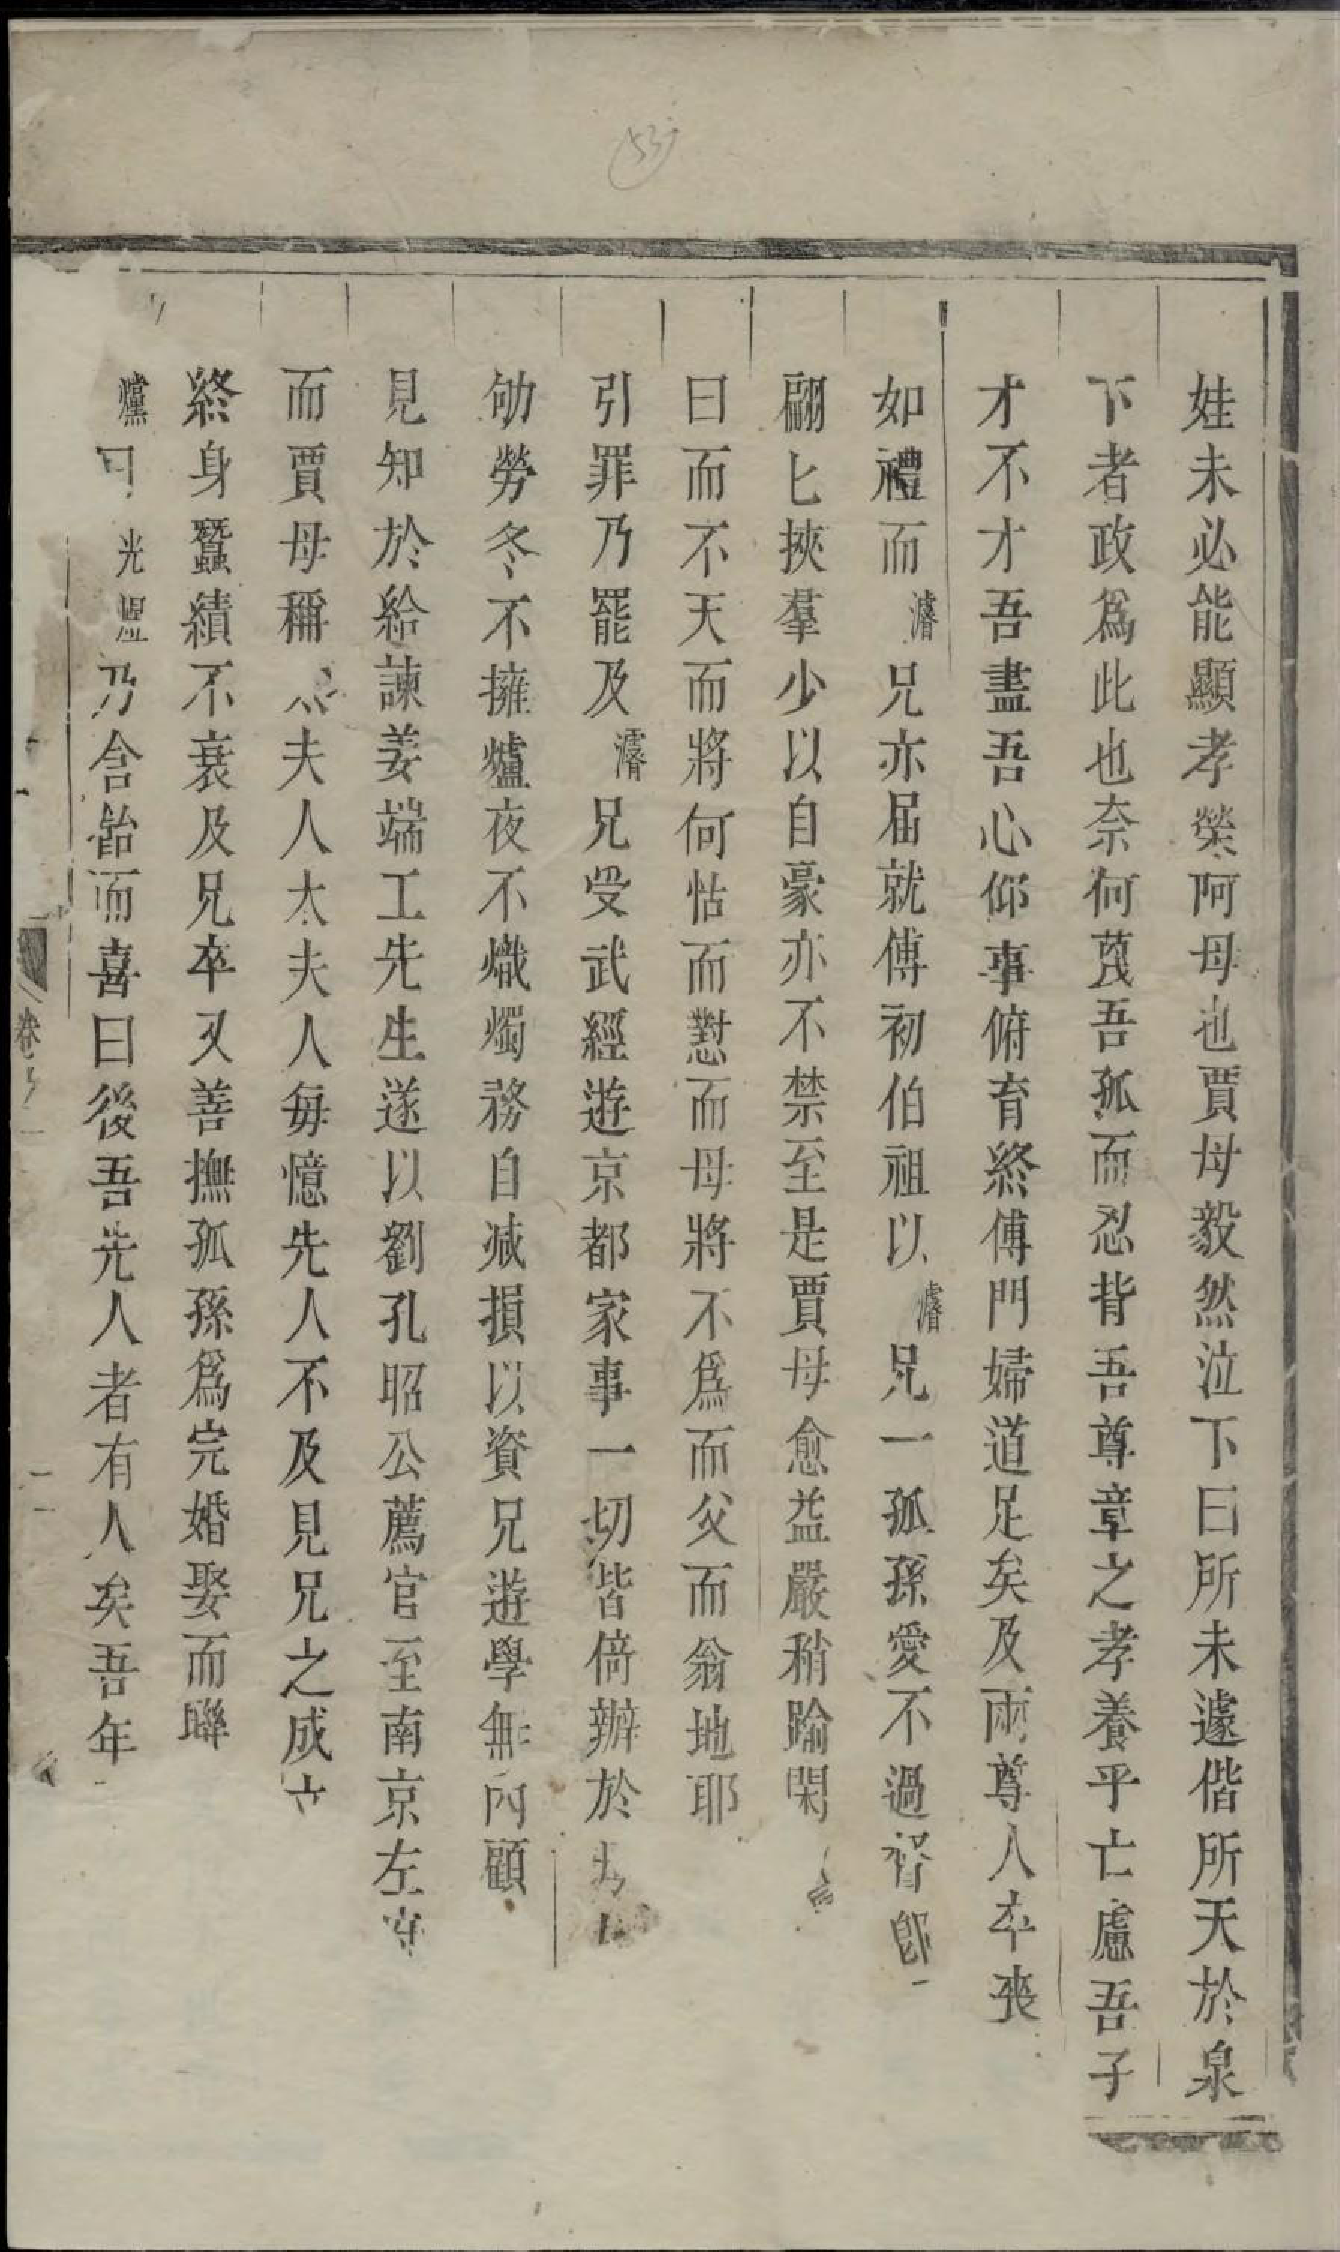 娃未必能顯孝榮阿母也賈母毅然泣下曰所未遽偕所天於泉
下者政爲此也奈何蔑吾孤而忍背吾尊章之孝養乎亡慮吾子
才不才吾盡吾心仰事俯育終傅門婦道足矣及兩尊人卒喪
如禮而濬兄亦屆就傅初伯祖以濬兄一孤孫愛不過督卽
翩匕挾羣少以自豪亦不禁至是賈母愈益嚴稍踰閑
曰而不天而將何怙而懟而母將不爲而父而翁地耶
引罪乃罷及濬兄受武經遊京都家事一切皆倚辦於
劬勞冬不擁爐夜不熾燭務自减損以資兄遊學無內顧
見知於給諫姜端工先生遂以劉孔昭公薦官至南京左
而賈母稱夫人太夫人每憶先人不及見兄之成立
終身蠶績不衰及兄卒又善撫孤孫爲完婚娶而聯
爣光乃含飴而喜曰後吾先人者有人矣吾年
卷
53